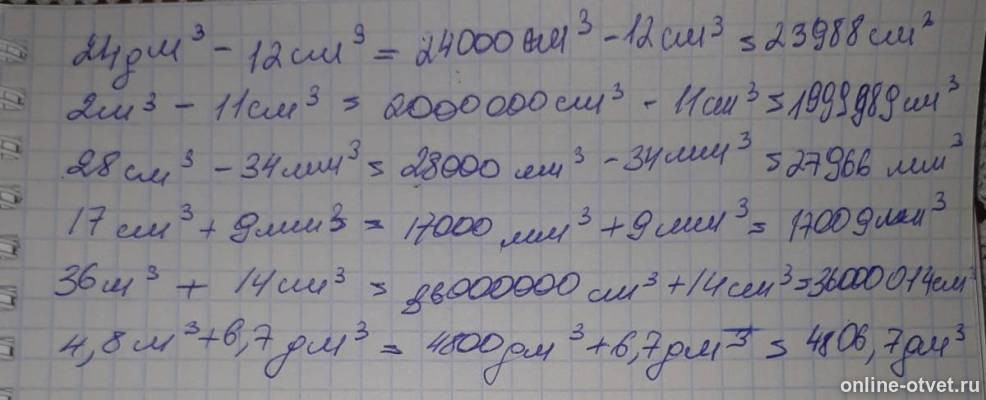 24дм³ - 12см³ = 24000см³ - 12см³ = 23988см³
2м³ - 11см³ = 2000000см³ - 11см³ = 1999989см³
28см³ - 34мм³ = 28000мм³ - 34мм³ = 27966мм³
17см³ + 9мм³ = 17000мм³ + 9мм³ = 17009мм³
36м³ + 14см³ = 36000000см³ + 14см³ = 36000014см³
4,8м³ + 6,7дм³ = 4800дм³ + 6,7дм³ = 4806,7дм³
online-otvet.ru